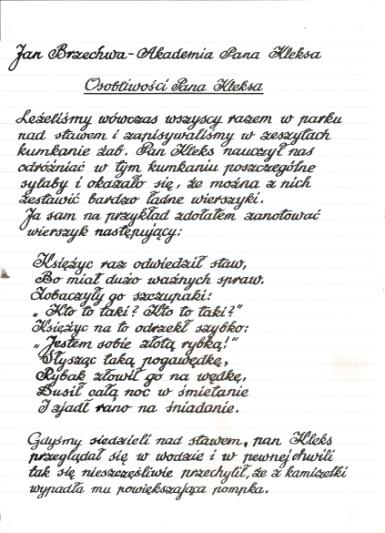 Jan Brzechwa - Akademia Pana Kleksa
Osobliwości Pana Kleksa
Leżeliśmy wówczas wszyscy razem w parku
nad stawem i zapisywaliśmy w zeszytach
kumkanie żab. Pan Kleks nauczył nas
odróżniać w tym kumkaniu poszczególne
sylaby i okazało się, że można z nich
zestawić bardzo ładne wierszyki.
Ja sam na przykład zdołałem zanotować
wierszyk następujący:
Księżyc raz odwiedził staw,
Bo miał dużo ważnych spraw.
Zobaczyły go szczupaki:
„Kto to taki? Kto to taki?"
Księżyc na to odrzekł szybko:
„Jestem sobie złotą rybką!"
Słysząc taką pogawędkę,
Rybak złowił go na wędkę,
Dusił całą noc w śmietanie
I zjadł rano na śniadanie.
Gdyśmy siedzieli nad stawem, pan Kleks
przeglądał się w wodzie i w pewnej chwili
tak się nieszczęśliwie przechylił, że z kamizelki
wypadła mu powiększająca pompka.